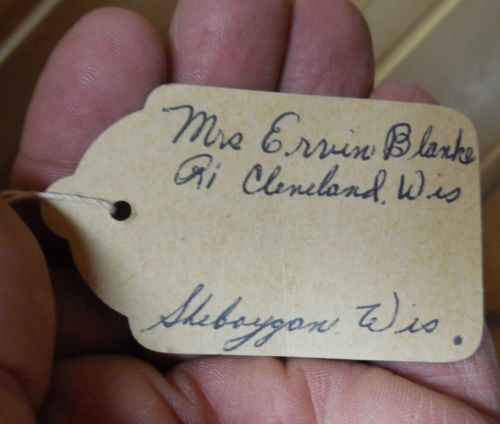 Mrs Ervin Blanke
R1 Cleveland, Wis
Sheboygan Wis.